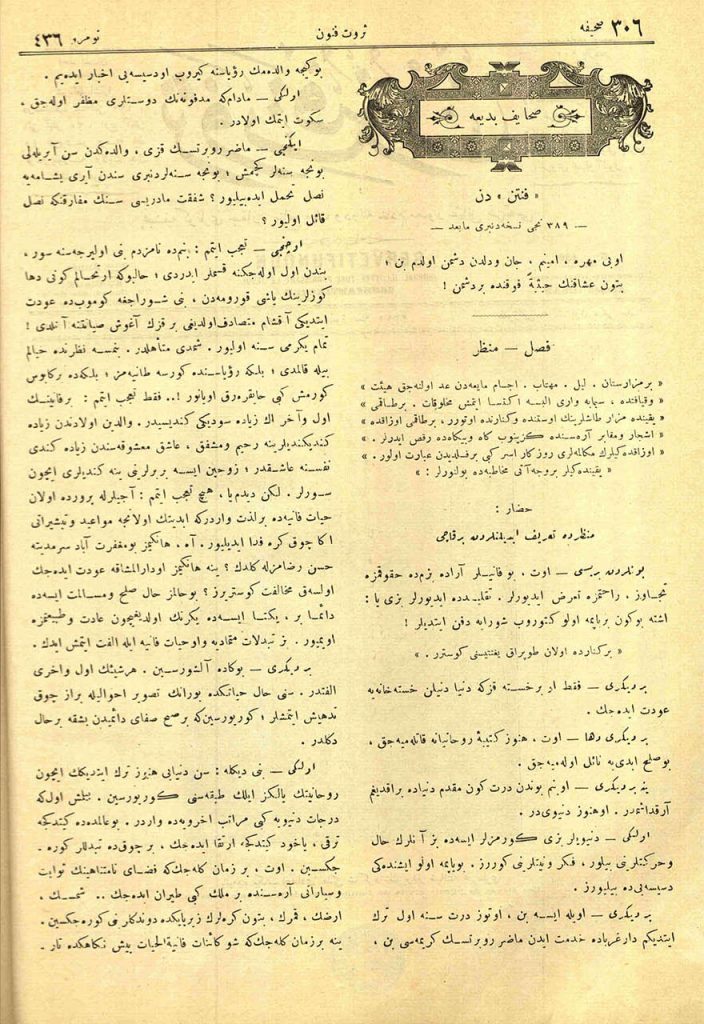 صحیفه ٣٠٦
ثروت فنون
نومرو ٤٣٦
صحایف بدیعه
« فنتن » دن
— ٣٨٩ نجی نسخه‌دنبری مابعد —
اوبی مهره ، امینم ، جان ودلدن دشمن اولدم بن ،
بتون عشاقنك فوقنده بردشمن !
فصل — منظر
« برمزارستان . لیل . مهتاب . اجسام مایعه‌دن عد اولنه‌جق هیئت »
« وقیافتده ، سیاه واری البسه اكتسا ایتمش مخلوقات . برطاقمی »
« یقینده مزار طاشلرینك اوستنده وكنارنده اوتورر ، برطاقمی اوزاقده »
« اشجار ومقابر آره‌سنده كزینوب كاه وبیكاه‌ده رقص ایدرلر . »
« اوزاقده‌كیلرك مكالمه‌لری روزكار اسر كبی برفلدیدن عبارت اولور . »
« یقینده‌كیلر بروجه‌آتی مخاطبه‌ده بولنورلر : »
حضار :
منظره‌ده تعریف ایدیلنلردن برقاچی
بونلردن بریسی — اوت ، بو فانیلر آراده بزم‌ده حقوقمزه
تجاوز ، راحتمزه تعرض ایدیورلر . تقلیدده ایدیورلر بزی یا :
اشته بوكون بریایمه اولو كتوروب شورایه دفن ایتدیلر !
« بركنارده اولان طوپراق یغنتیسنی كوسترر . »
بر دیكری — فقط او برخسته قزكه دنیا دنیلن خسته‌خانه‌یه
عودت ایده‌جك .
بر دیكری دها — اوت ، هنوز كتیبۀ روحانیانه قاتله‌میه‌جق ،
بوصلح ابدی‌یه نائل اوله‌میه‌جق .
ینه بر دیكری — اوبنم بوندن درت كون مقدم دنیاده براقدیغم
آرقداشمدر . اوهنوز دنیوی‌در .
اولكی — دنیویلر بزی كورمزلر ایسه‌ده بز آنلرك حال
وحركتلرینی بیلور ، فكر ونیتلرینی كوررز . بویایمه اولو ایشنده‌كی
دسیسه‌یی‌ده بیلیورز .
بر دیكری — اویله ایسه بن ، اوتوز درت سنه اول ترك
ایتدیكم دارغرباده خدمت ایدن ماضر روبرتسك كریمه‌سی بن ،
بوكیجه والده‌مك رؤیاسنه كیروب اودسیسه‌یی اخبار ایده‌یم .
اولكی — مادامكه مدفونه‌نك دوستلری مظفر اوله‌جق .
سكوت ایتمك اولادر .
ایكنجی — ماضر روبرتسك قزی ، والده‌كدن سن آیریله‌لی
بونجه سنه‌لر كچمش ؛ بونجه سنه‌لردنبری سندن آیری یشامه‌یه
نصل تحمل ایده‌بیلیور ؟ شفقت مادریسی سنك مفارقتكه نصل
قائل اولیور ؟
اوچنجی — تعجب ایتمم : بنم‌ده نامزدم بنی اولیرجه‌سنه سور ،
بندن اول اوله‌جكنه قسملر ایدردی ؛ حالبوكه ارتحالم كونی دها
كوزلرینك یاشی قورومه‌دن ، بنی شوراجغه كوموب‌ده عودت
ایتدیكی آقشام متصادف‌اولدیغی بر قزك آغوش صیانتنه آتلدی !
تمام یكرمی سنه اولیور . شمدی متأهلدر . بنمسه نظرنده خیالم
بیله قالمدی ؛ بلكه رؤیاسنده كورسه طانیه‌مز ؛ بلكه‌ده بركابوس
كورمش كبی حایقره‌رق اویانور !.. فقط تعجب ایتمم : برفانینك
اول وآخر اك زیاده سودیكی كندیسیدر . والدین اولادندن زیاده
كندیكندیلرینه رحیم ومشفق ، عاشق معشوقه‌سندن زیاده كندی
نفسنه عاشقدر ؛ زوجین ایسه بربرلرینی ینه كندیلری ایچون
سورلر . لكن دیدم‌یا ، هیچ تعجب ایتمم : آجیلرله پرورده اولان
حیات فانیه‌ده برلذت واردركه ابدیتك اولانجه مواعید وتبشیراتی
اكا چوق كره فدا ایدیلیور . آه ، هانكیمز بومغفرت آباد سرمدیته
حسن رضامزله كلدك ؟ ینه هانكیمز اودارالمشاقه عودت ایده‌جك
اولسه‌ق مخالفت كوستریرز ؟ بوحالمز حال صلح ومسالمت ایسه‌ده
دائما بر ، یكنسا ایسه‌ده یكرنك اولدیغیچون عادت وطبیعتمزه
اویمیور . بز تبدلات متمادیه واوحیات فانیه ایله الفت ایتمش ایدك .
بر دیكری — بوكاده آلیشورسین . هرشیئك اول واخری
الفتدر . سنی حال حیاتكده بورانك تصویر احوالیله براز چوق
تدهیش ایتمشلر ؛ كوریورسین‌كه برصبح صفای دائمیدن بشقه برحال
دكلدر .
اولكی — بنی دیكله : سن دنیایی هنوز ترك ایتدیكك ایچون
روحانیتك یالكز ایلك طبقه‌سنی كوریورسین . بیلش اول‌كه
درجات دنیویه كبی مراتب اخرویه‌ده واردر . بوعالمده‌ده كیتدكجه
ترقی ، یاخود كیتدكجه ارتقا ایده‌جك ، برچوق‌ده تبدللر كوره ـ
جكسین . اوت ، بر زمان كله‌جك‌كه فضای نامتناهینك ثوابت
وسیاراتی آره‌سنده بر ملك كبی طیران ایده‌جك .. شمسك ،
ارضك ، قمرك ، بتون كره‌لرك زیرپایكده دوندكلرینی كوره‌جكسین .
ینه برزمان كله‌جك‌كه شو كائنات فانیةالحیات پیش نكاهكده تار ـ